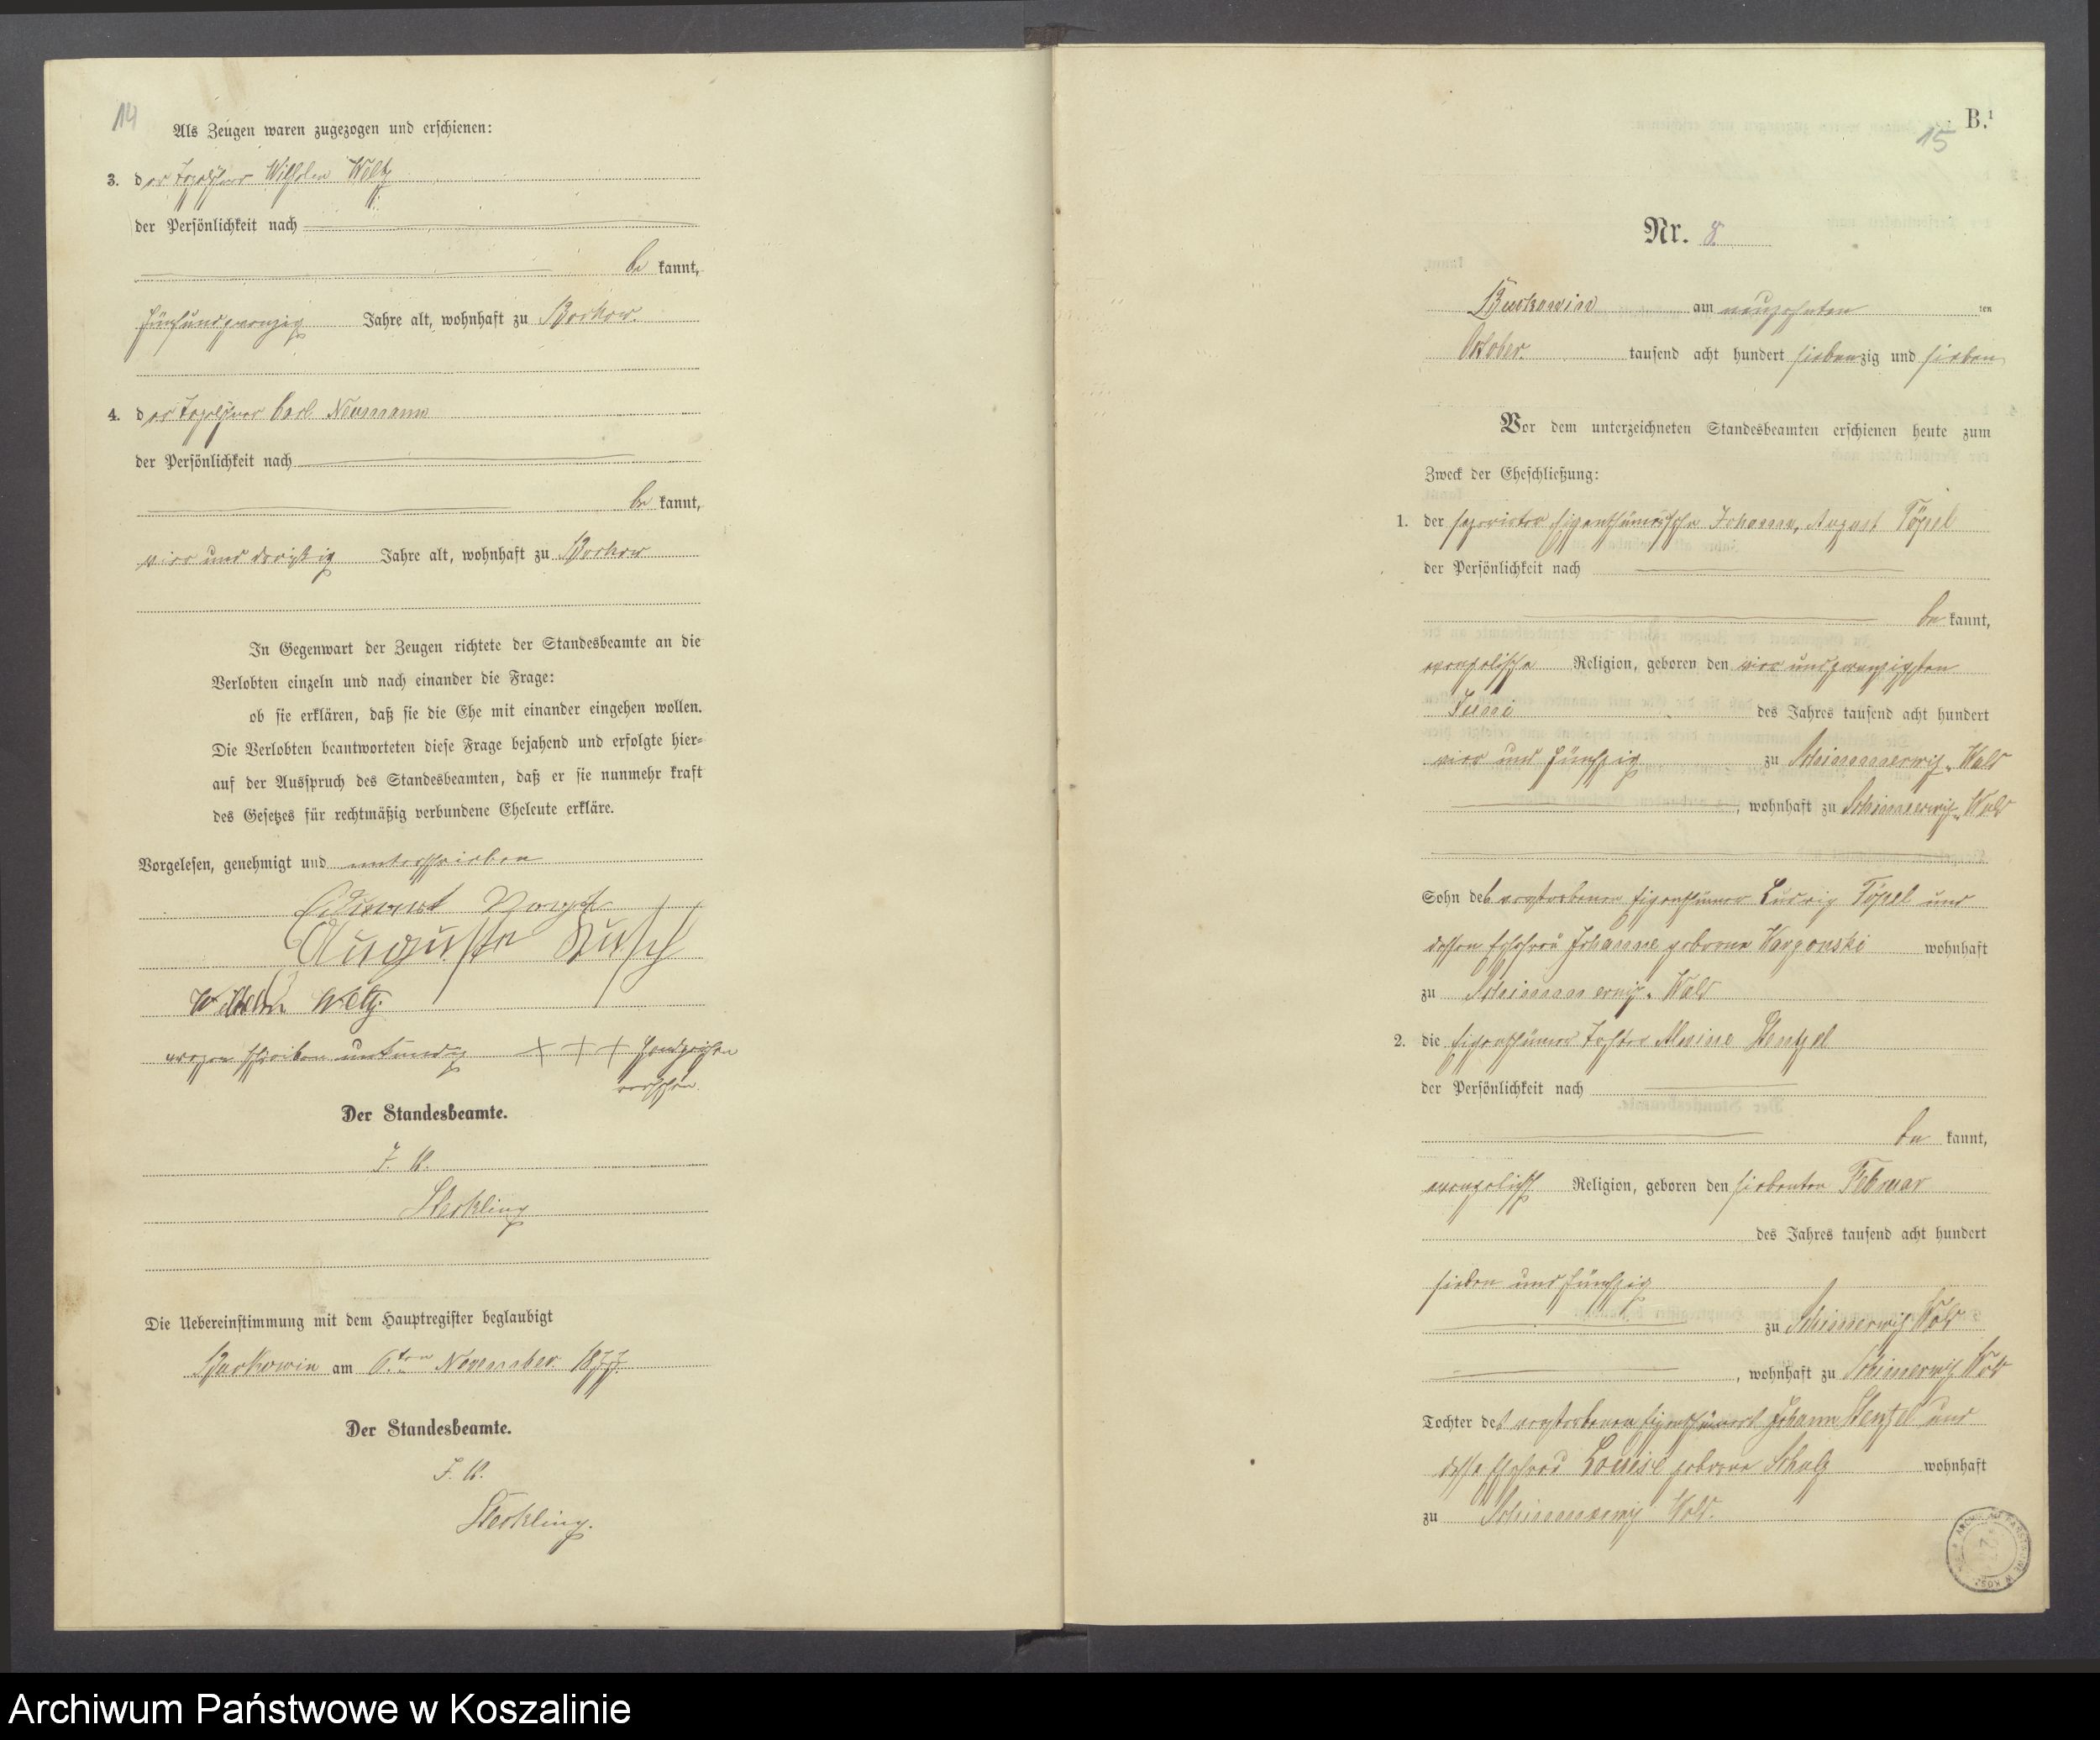 14
Als Zeugen waren zugezogen und erschienen:
3. der Tagelöhner Wilhelm Weltz
der Persönlichkeit nach
be kannt,
fünfundzwanzig Jahre alt, wohnhaft zu Borkow.
4. der Tagelöhner Carl Neumann
der Persönlichkeit nach
be kannt,
vier und dreißig Jahre alt, wohnhaft zu Borkow
In Gegenwart der Zeugen richtete der Standesbeamte an die
Verlobten einzeln und nach einander die Frage:
ob sie erklären, daß sie die Ehe mit einander eingehen wollen.
Die Verlobten beantworteten diese Frage bejahend und erfolgte hier-
auf der Ausspruch des Standesbeamten, daß er sie nunmehr kraft
des Gesetzes für rechtmäßig verbundene Eheleute erkläre.
Vorgelesen, genehmigt und unterschrieben
Auguste
Wilhelm Weltz
wegen schreiben unkundig + + + Handzeichen
versehen.
Der Standesbeamte.
J. V.
Sterkling
Die Uebereinstimmung mit dem Hauptregister beglaubigt
Buckowin am 6.ten November 1877.
Der Standesbeamte.
J. V.
Sterkling.
B.1
15
Nr. 8.
Buckowin am neunzehnten ten
October tausend acht hundert siebenzig und sieben
Vor dem unterzeichneten Standesbeamten erschienen heute zum
Zweck der Eheschließung:
1. der Johann, August Töpel
der Persönlichkeit nach
be kannt,
evangelische Religion, geboren den vier und zwanzigsten
Juni des Jahres tausend acht hundert
vier und fünfzig zu Schimmerwitz-Wald
, wohnhaft zu Schimmerwitz-Wald
Sohn des verstorbenen Eigenthümer Ludwig Töpel und
dessen Ehefrau Johanne geborene Wargonski wohnhaft
zu Schimmerwitz-Wald
2. die Eigenthümer Tochter Alwine Stentzel
der Persönlichkeit nach
be kannt,
evangelisch Religion, geboren den siebenten Februar
des Jahres tausend acht hundert
sieben und fünfzig
zu Schimmerwitz Wald
, wohnhaft zu Schimmerwitz Wald
Tochter des verstorbenen Eigenthümers Johann Stentzel und
dessen Ehefrau Louise geborene Schulz wohnhaft
zu Schimmerwitz Wald.
Archiwum Państwowe w Koszalinie